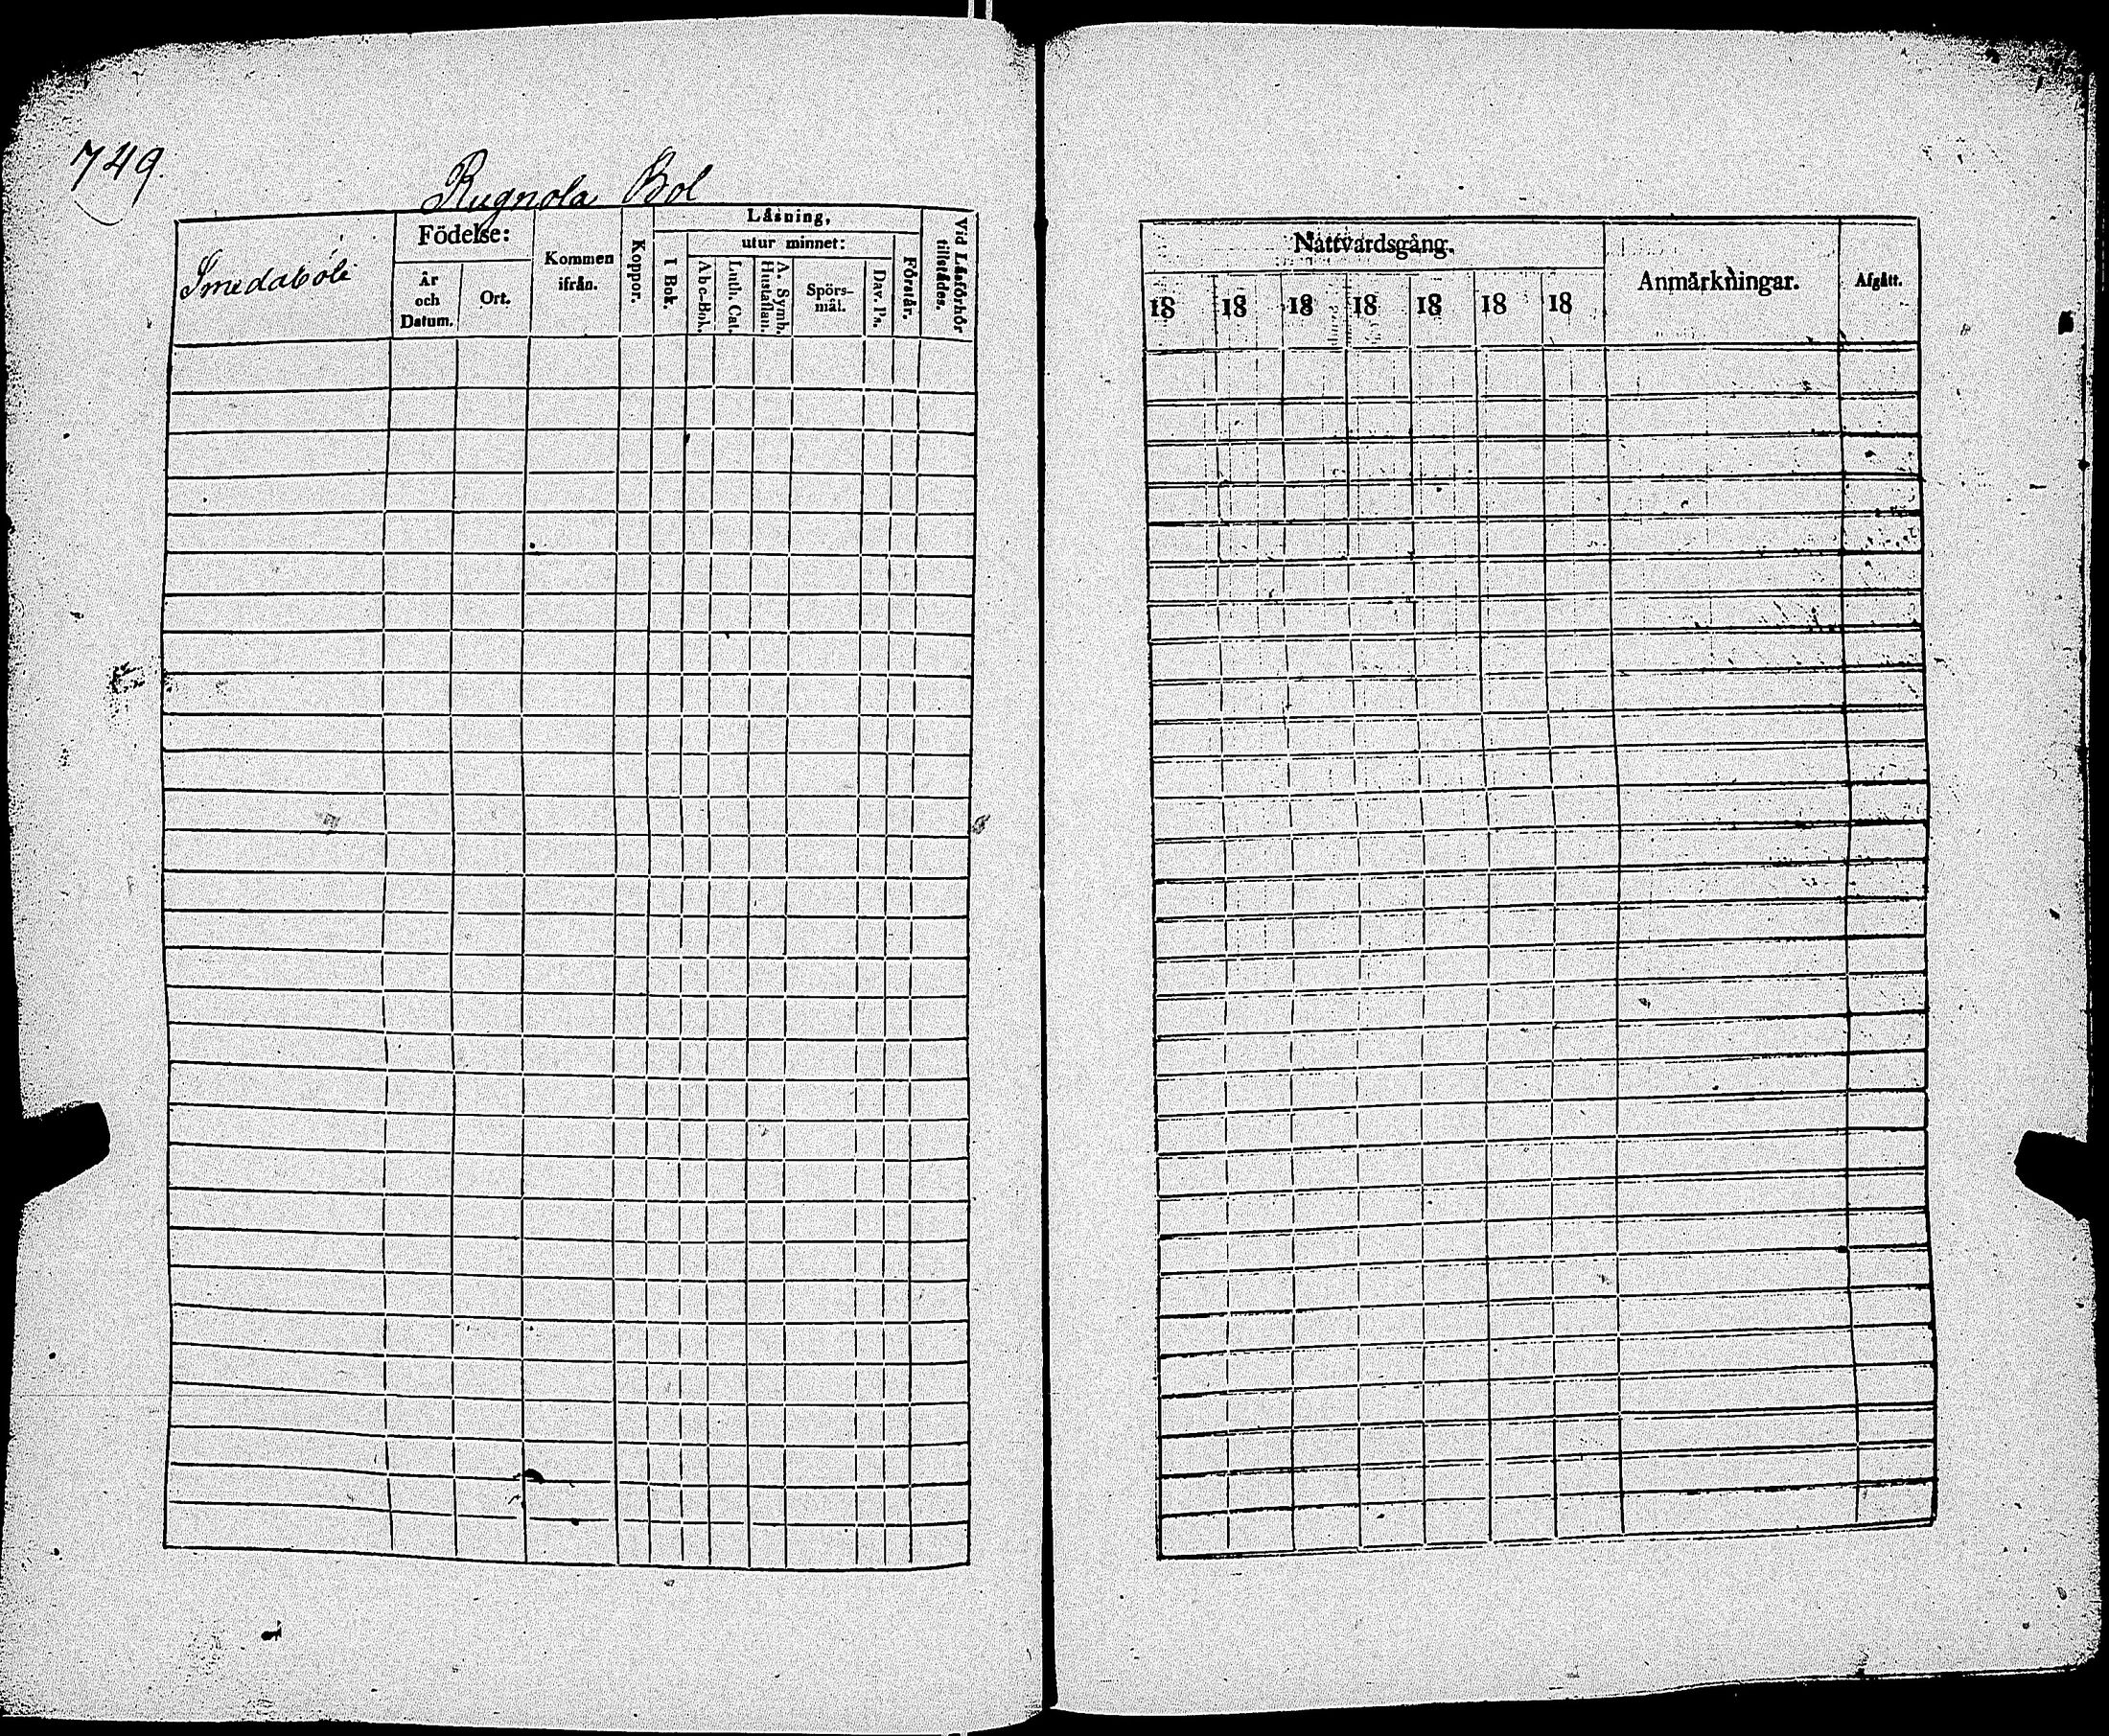 749.
Rugnola Bol
Smedaböle
Födelse:
År och Datum.
Ort.
Kommen ifrån.
Koppor.
Läsning,
I Bok.
utur minnet:
Abc-Bok.
Luth. Cat.
A. Symb. Hustaflan.
Spörs-
mål.
Dav. Ps.
Förstår.
Vid Läsförhör tillstädes.
Nattvardsgång.
18 18 18 18 18 18 18
Anmärkningar.
Afgått.